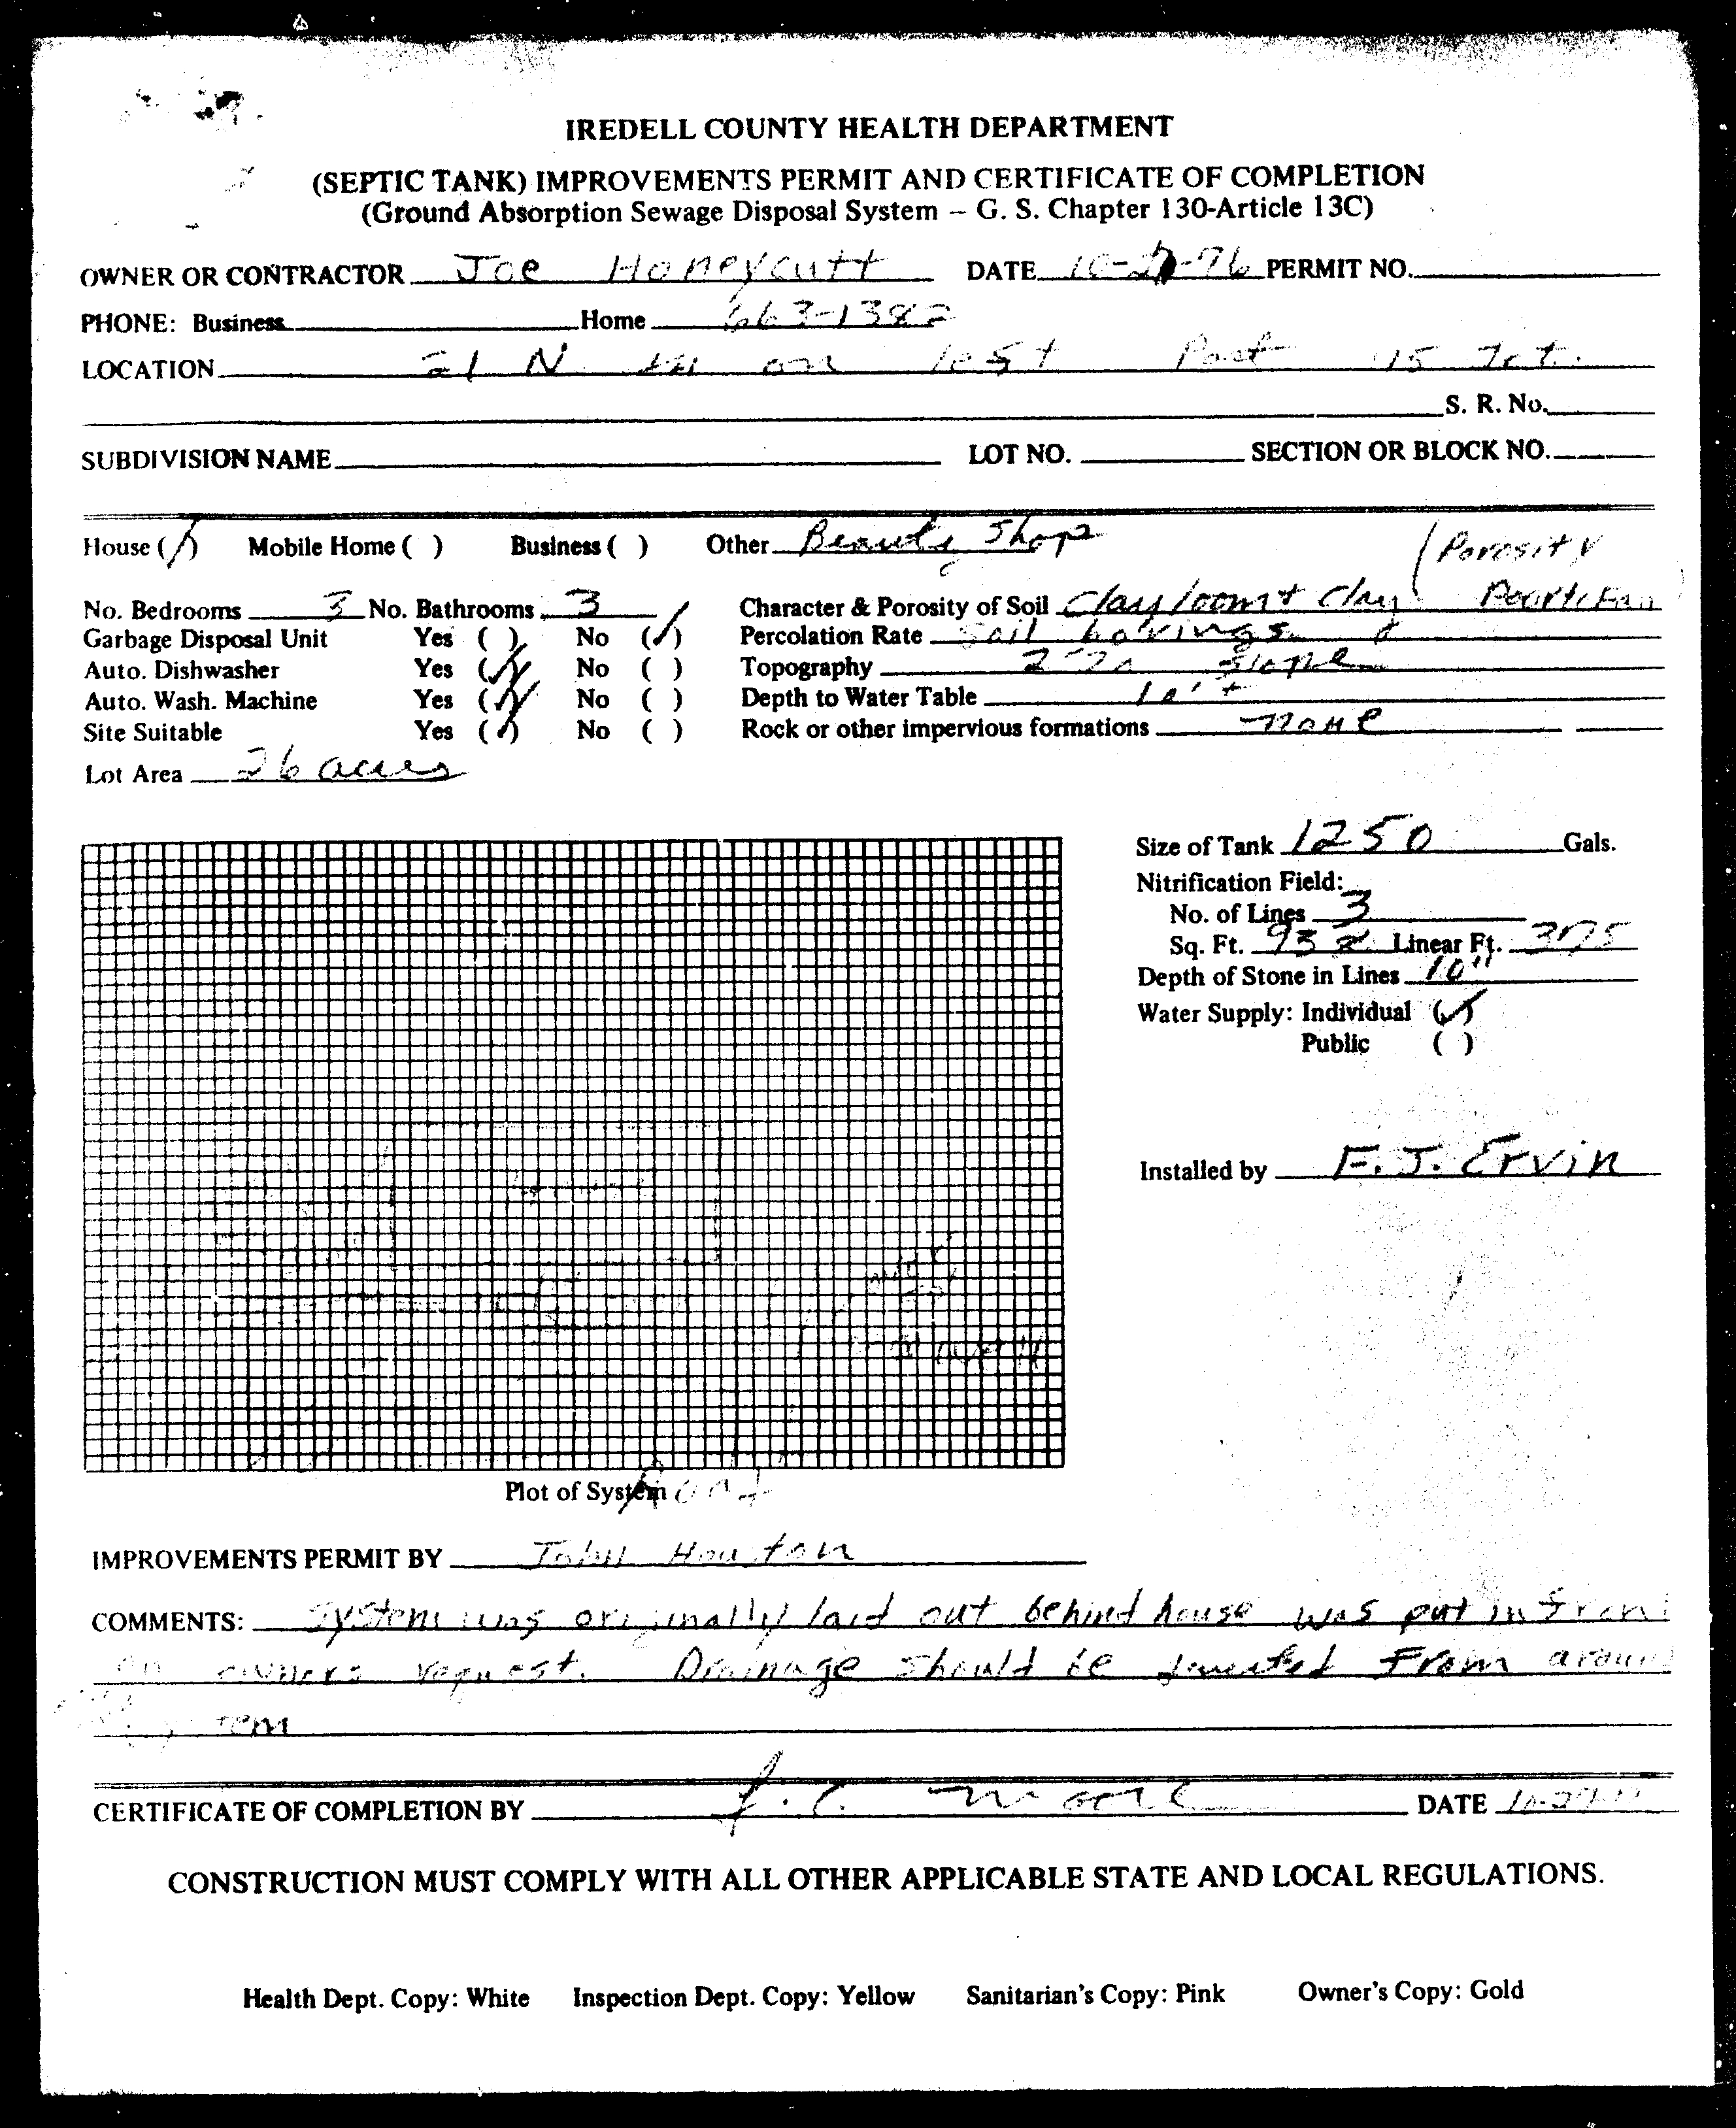 IREDELL COUNTY HEALTH DEPARTMENT
(SEPTIC TANK) IMPROVEMENTS PERMIT AND CERTIFICATE OF COMPLETION
(Ground Absorption Sewage Disposal System – G. S. Chapter 130-Article 13C)
OWNER OR CONTRACTOR Joe Honeycutt DATE PERMIT NO.
PHONE: Business Home 663-1382
LOCATION 21 N on left Past 115 Jct.
S. R. No.
SUBDIVISION NAME LOT NO. SECTION OR BLOCK NO.
House (/) Mobile Home ( ) Business ( ) Other Beauty Shop
(Porosity
No. Bedrooms 3 No. Bathrooms 3 Character & Porosity of Soil Clay loam + Clay
Garbage Disposal Unit Yes ( ) No (✓) Percolation Rate Soil borings
Auto. Dishwasher Yes (✓) No ( ) Topography slope
Auto. Wash. Machine Yes (✓) No ( ) Depth to Water Table 10'+
Site Suitable Yes (✓) No ( ) Rock or other impervious formations none
Lot Area 26 acres
Size of Tank 1250 Gals.
Nitrification Field:
No. of Lines 3
Sq. Ft. Linear Ft. 375
Depth of Stone in Lines 10"
Water Supply: Individual (✓)
Public ( )
Installed by F. J. Ervin
Plot of System
IMPROVEMENTS PERMIT BY John Houston
COMMENTS: System was originally laid out behind house was put in front
on owners request. Drainage should be from around
CERTIFICATE OF COMPLETION BY J. C. Moore DATE
CONSTRUCTION MUST COMPLY WITH ALL OTHER APPLICABLE STATE AND LOCAL REGULATIONS.
Health Dept. Copy: White Inspection Dept. Copy: Yellow Sanitarian's Copy: Pink Owner's Copy: Gold